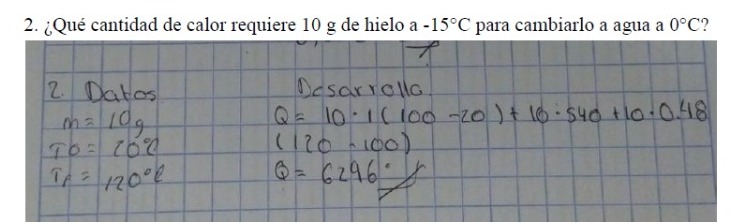 2. ¿Qué cantidad de calor requiere 10 g de hielo a -15°C para cambiarlo a agua a 0°C?
2. Datos
m = 10g
T0 = 20°C
Tf = 120°C
Desarrollo
Q = 10 · 1 (100 - 20) + 10 · 540 + 10 · 0.48
(120 - 100)
Q = 6296